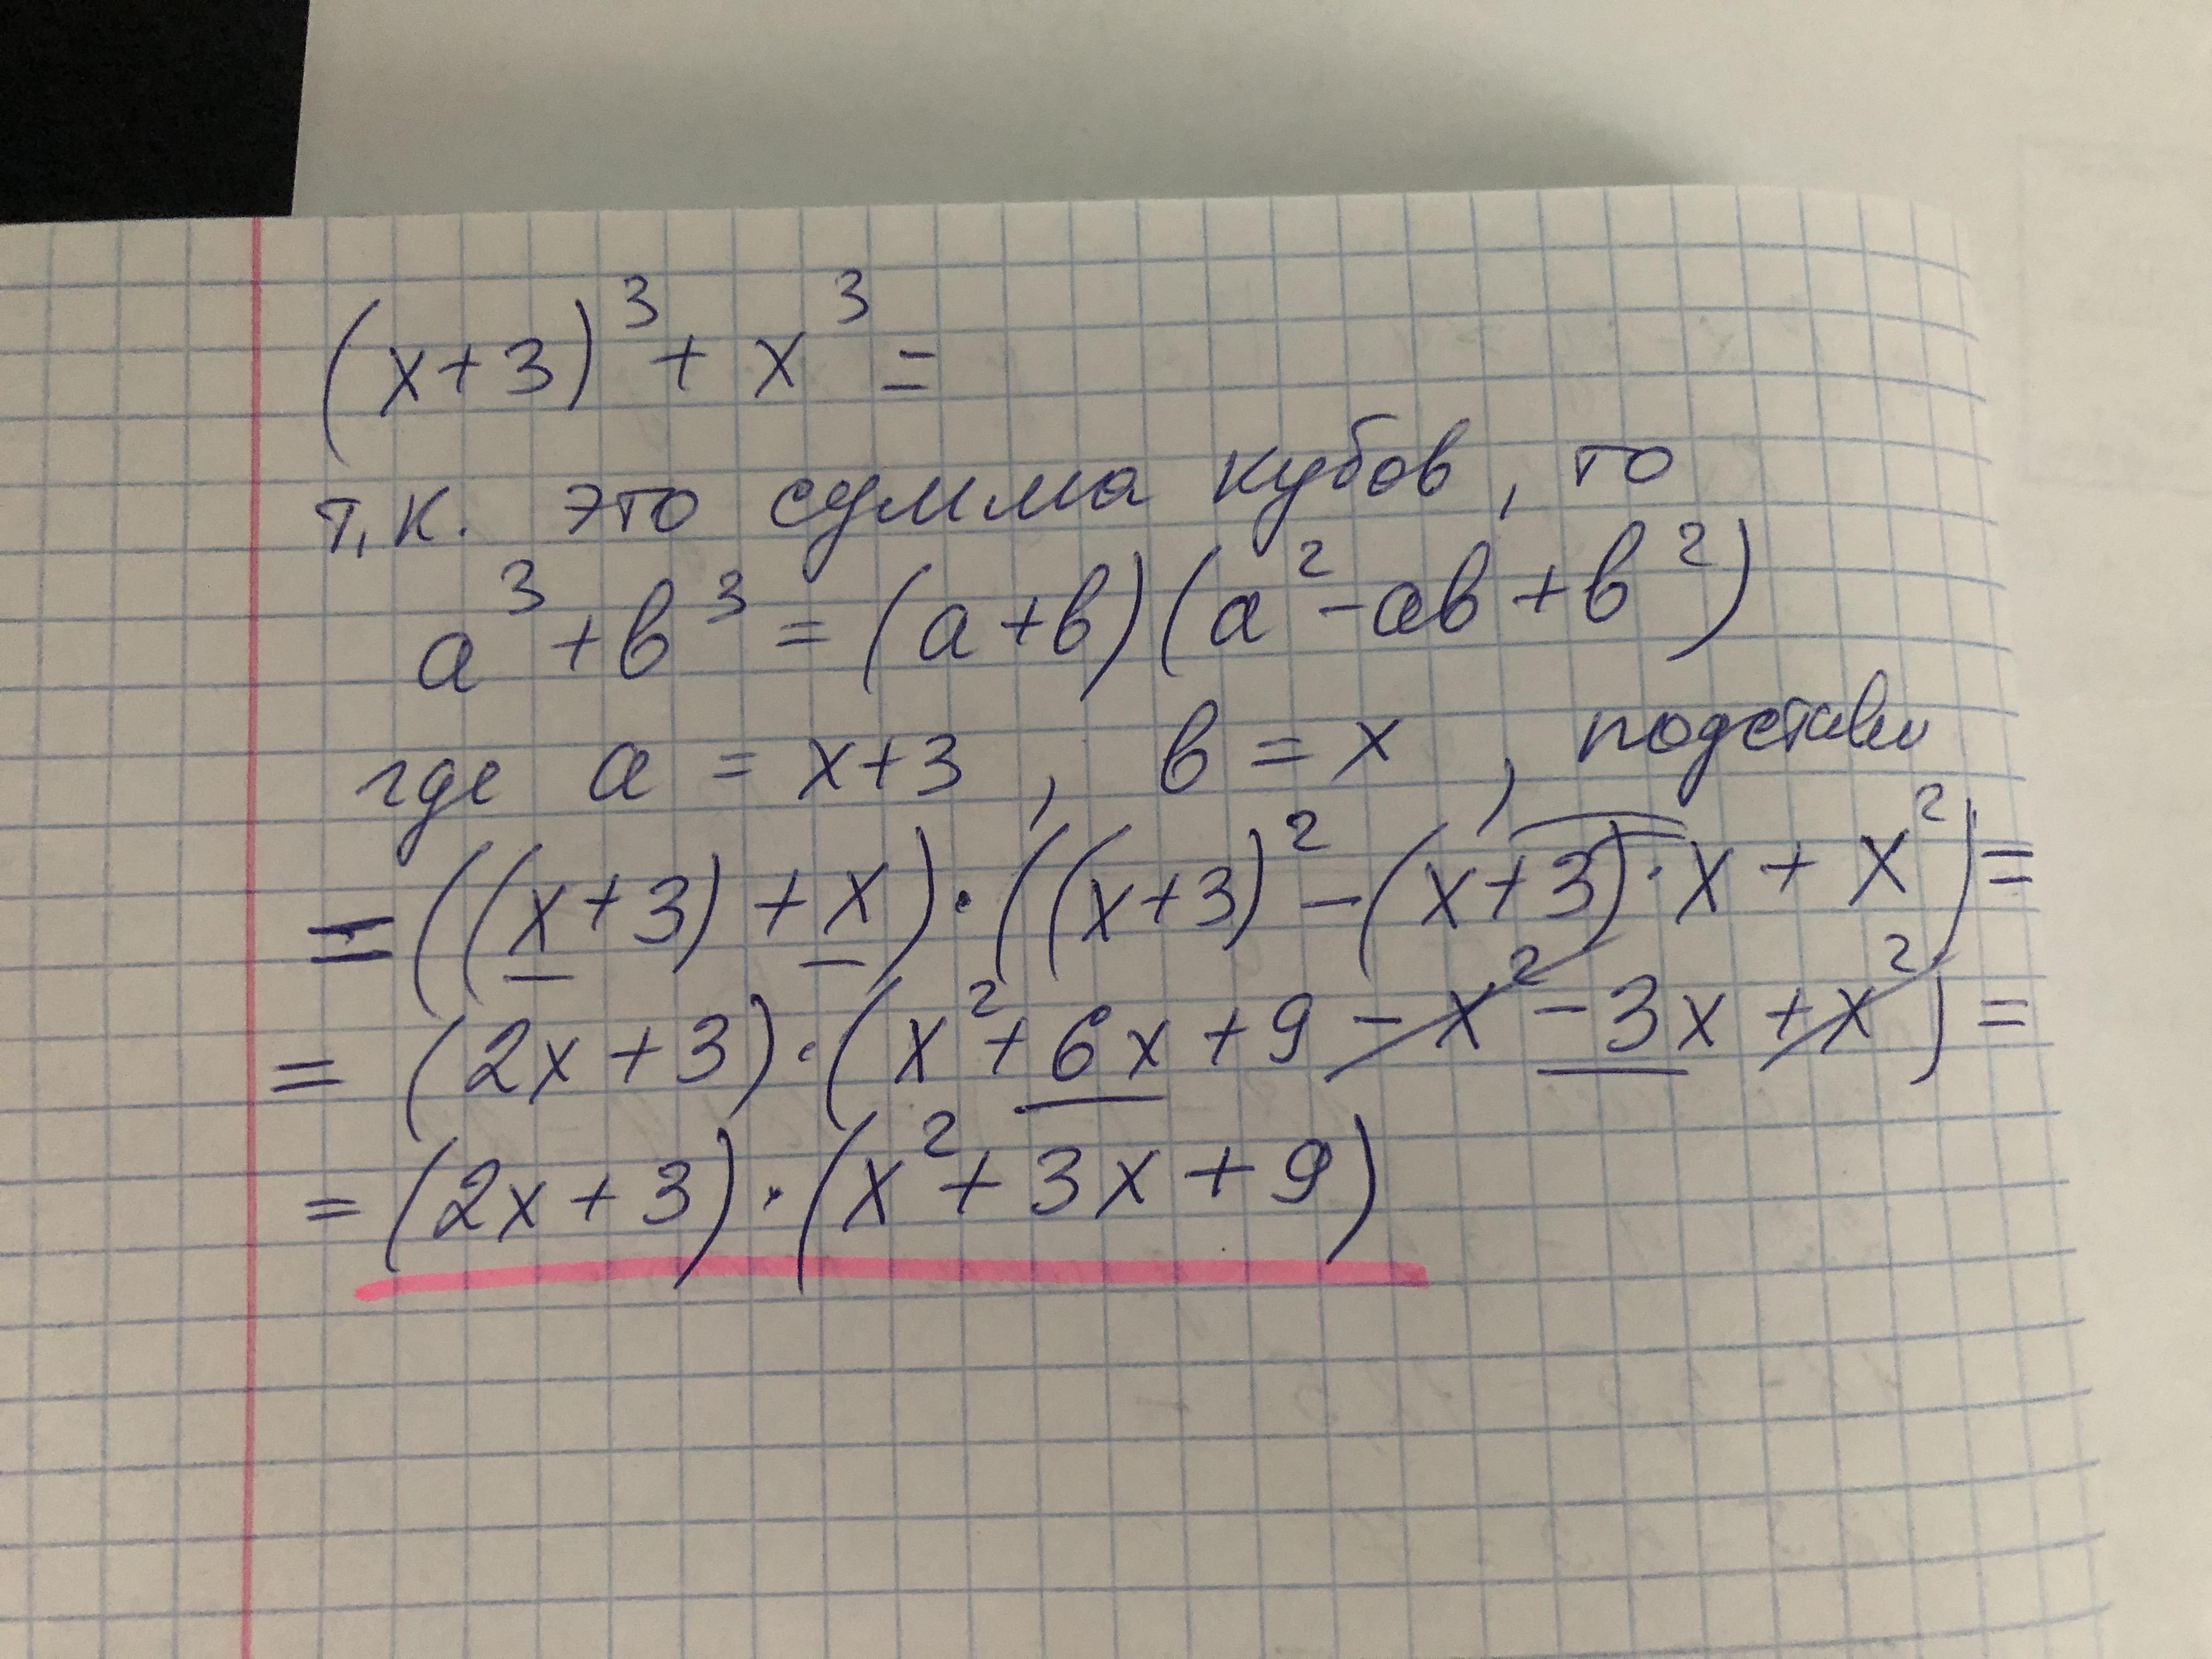 (x+3)³ + x³ =
т.к. это сумма кубов, то
a³ + в³ = (a+в)(a² - aв + в²)
где a = x+3, в = x, подставим
= ((x+3) + x) · ((x+3)² - (x+3) · x + x²) =
= (2x+3) · (x² + 6x + 9 - x² - 3x + x²) =
= (2x+3) · (x² + 3x + 9)